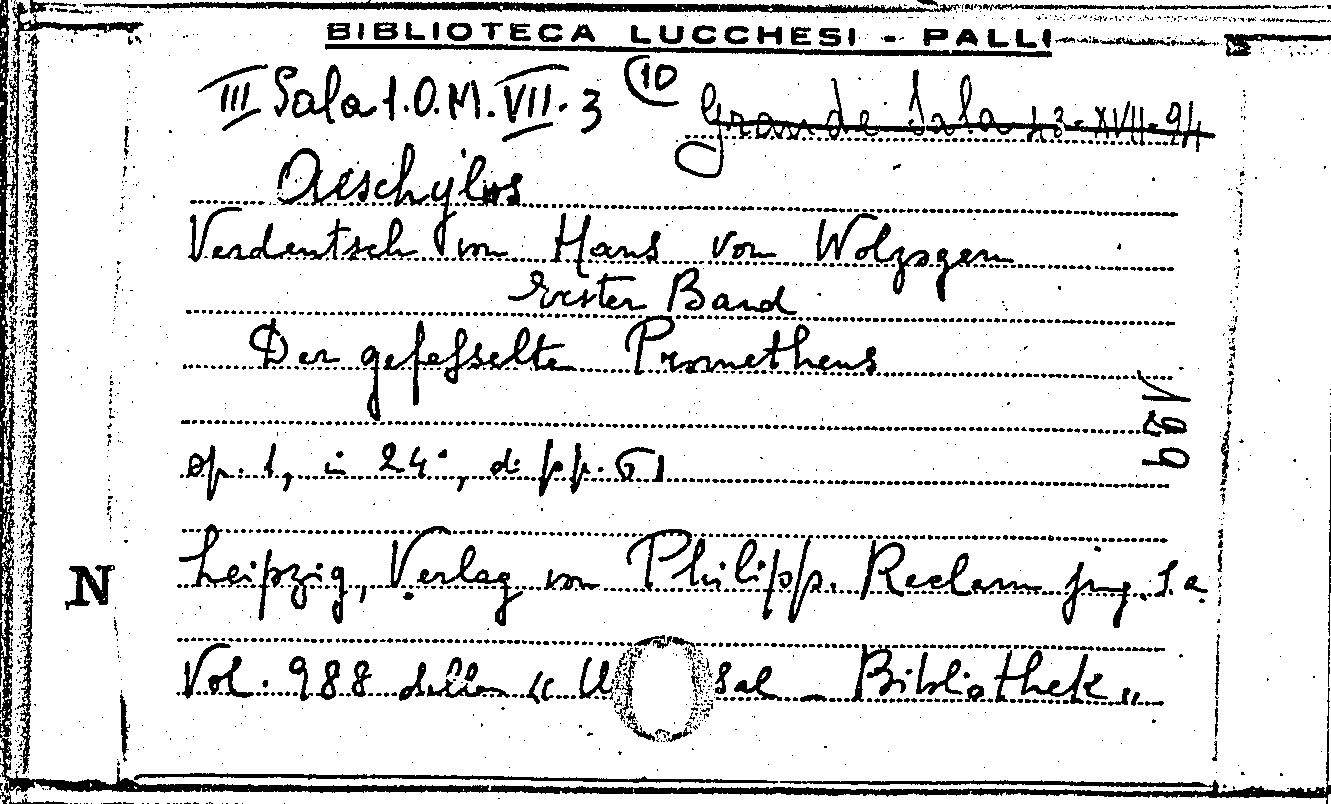 BIBLIOTECA LUCCHESI - PALLI
III Sala 1.O.M. VII. 3 10 Grande Sala 43-XVII-94
Aeschylos
Verdeutsch von Hans von Wolzogen
Erster Band
Der gefesselte Prometheus
op. 1, in 24°, di pp. 61
Leipzig, Verlag von Philipp. Reclam jung. s.a.
Vol. 988 della « U sal - Bibliothek "
N